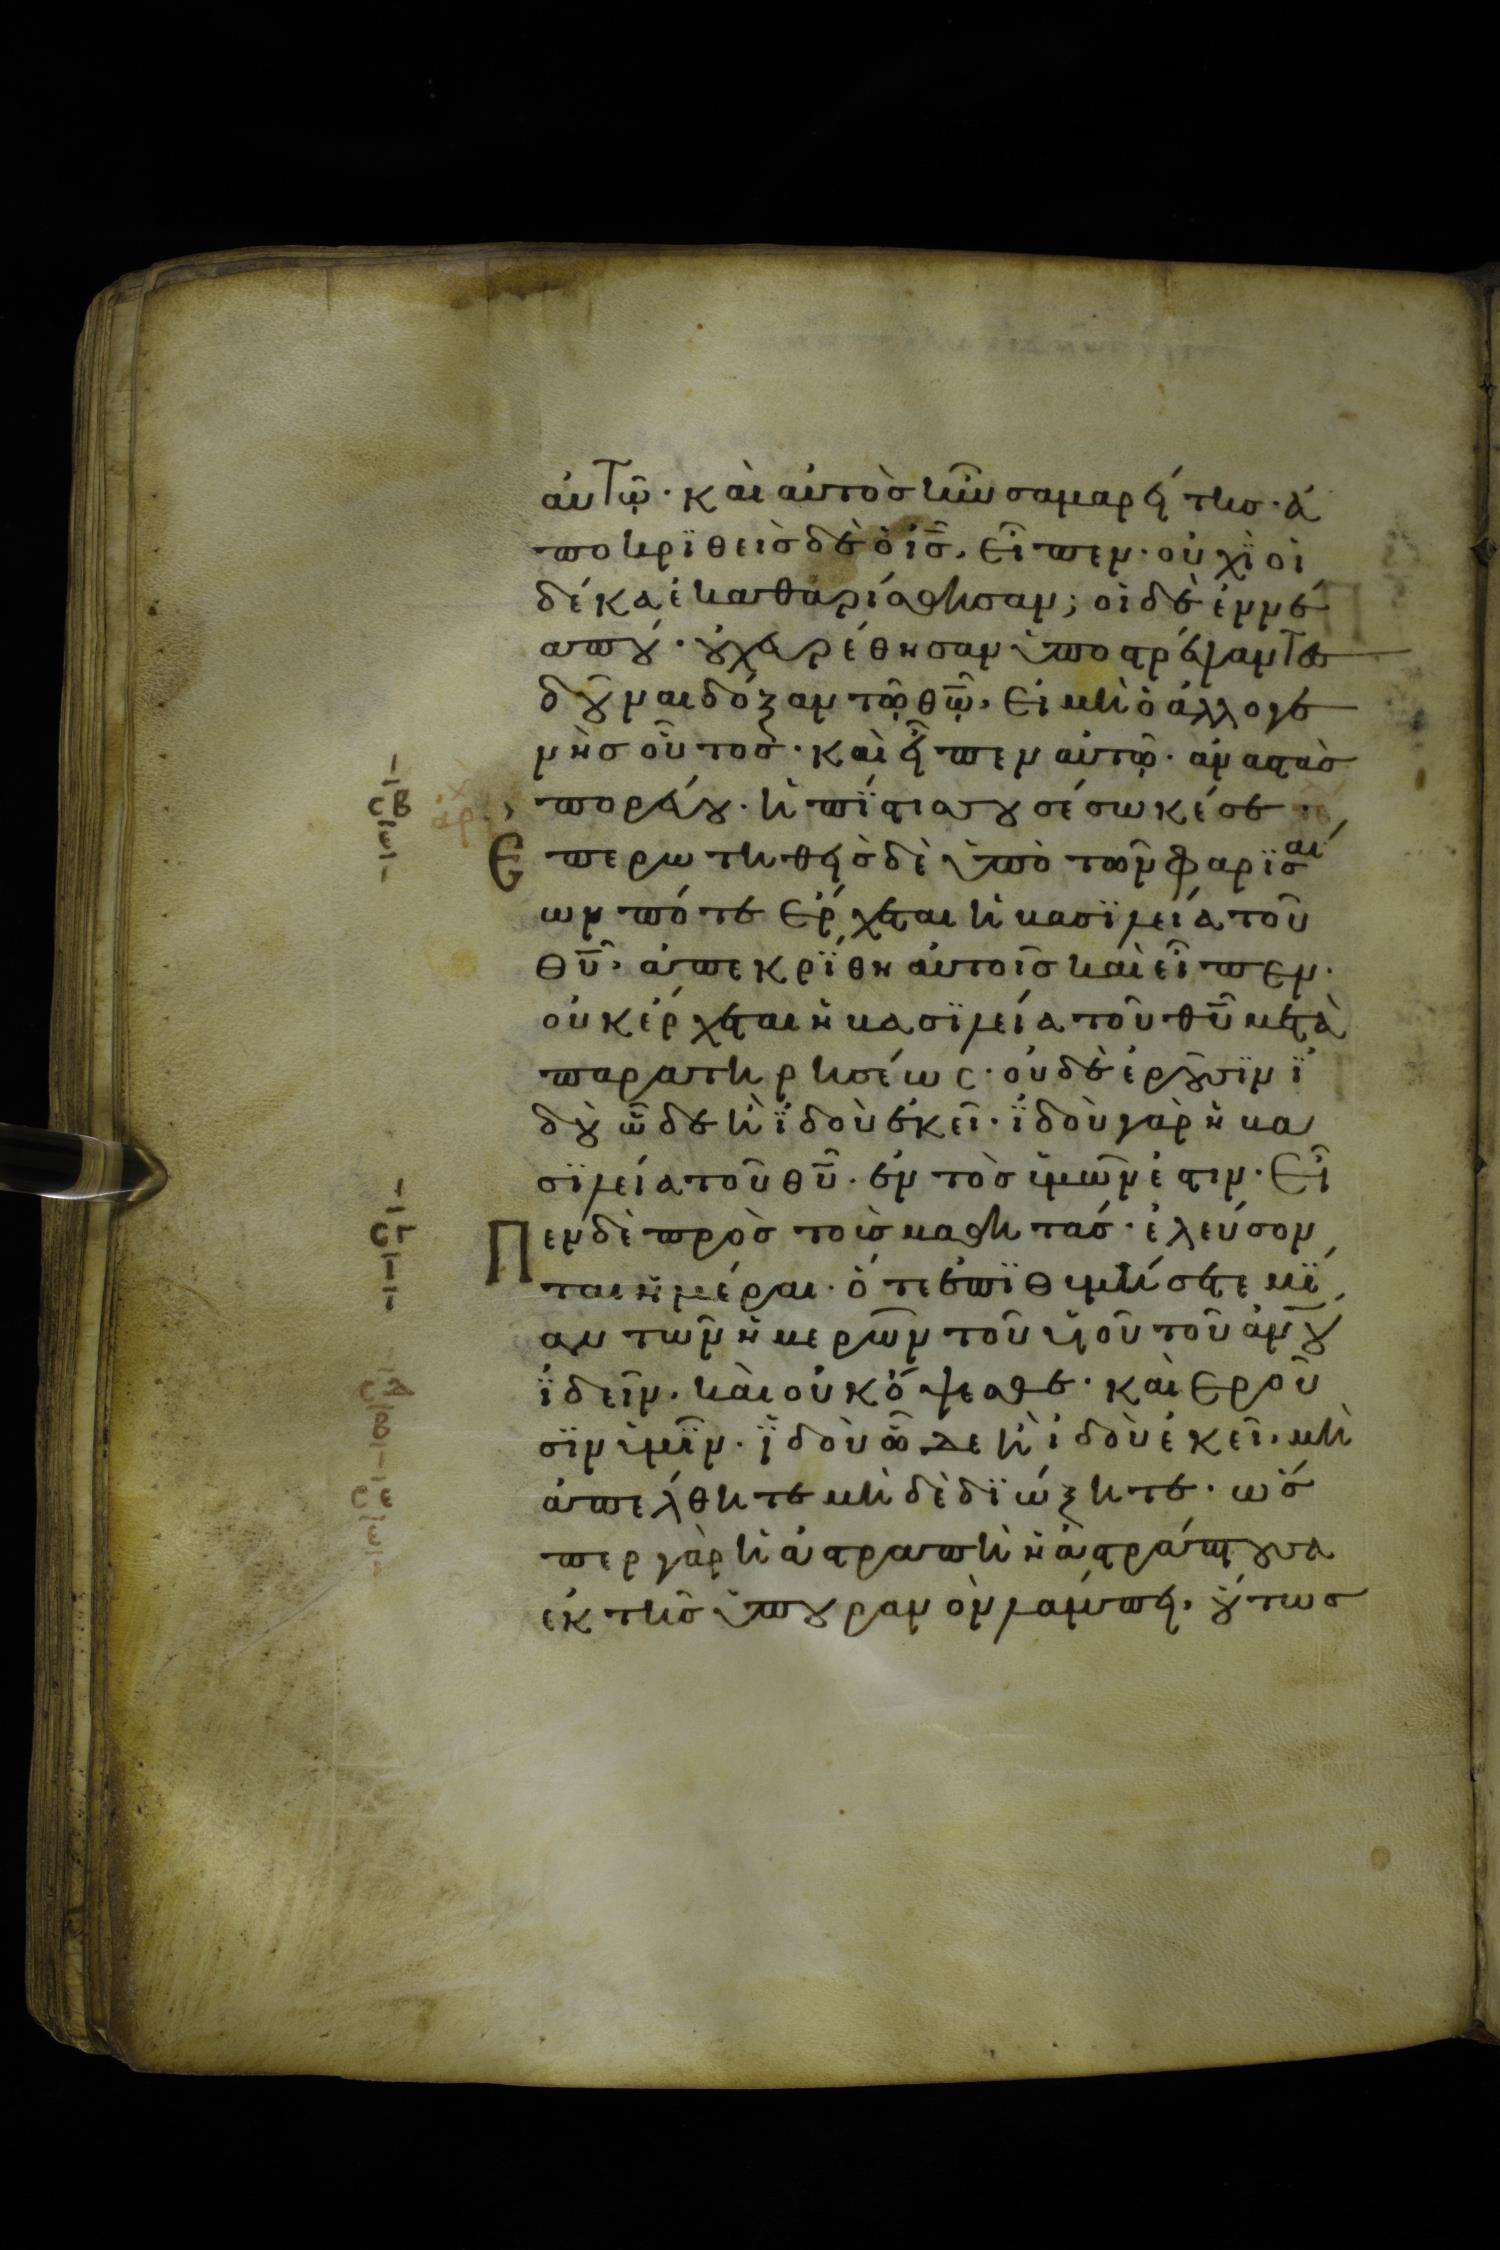 αὐτῷ· καὶ αὐτὸσ ἦν σαμαρείτησ· ἀ
ποκρϊθεὶσ δὲ ὁ ἰς̅. εἶπεν· οὐχϊ οἱ
δέκα ἐκαθαρίσθησαν; οἱ δὲ ἐννέ
α ποῦ· οὐχ ἑυρέθησαν ὑποστρέψαντεσ
δοῦναι δόξαν τῷ θω̅. εἰ μὴ ὁ ἀλλογε
νὴσ οὗτοσ· καὶ εἶπεν αὐτῷ· ἀναστὰσ
πορεύου· ἡ πίστισ σου σέσωκέ σε·
Ε περωτηθεὶσ δὲ ὑπὸ τῶν φαρϊσαί
ων πότε ἔρχεται ἡ βασϊλεία τοῦ
θυ̅. ἀπεκρϊθη αὐτοῖσ καὶ εἶπεν·
οὐκ ἔρχεται ἡ βασϊλεία τοῦ θυ̅ μετὰ
παρατηρησέως· οὐδὲ ἐροῦσϊν ϊ
δοὺ ὧδε ἢ ϊδοὺ ἐκεῖ· ϊδοὺ γὰρ ἡ βα
σϊλεία τοῦ θυ̅. ἐντὸσ ὑμῶν ἐστιν· Εἶ
Π εν δὲ πρὸσ τοὺσ μαθητάσ· ἐλεύσον
ται ἡμέραι· ὅτε ἐπϊθυμήσετε μϊ
αν τῶν ἡμερῶν τοῦ υἱοῦ τοῦ ἀνου̅
ϊδεῖν. καὶ οὐκ ὄψεσθε· καὶ ἐροῦ
σϊν ὑμῖν· ϊδοὺ ὧδε ἢ ἰδοὺ ἐκεῖ. μὴ
ἀπέλθητε μὴ δὲ δϊώξητε· ὥσ
περ γὰρ ἡ ἀστραπὴ ἡ ἀστράπτουσα
ἐκ τῆσ ὑπ οὐρανὸν λάμπει. οὕτωσ
ςβ
ε
ςγ
ι
ςδ
β
ςε
ε